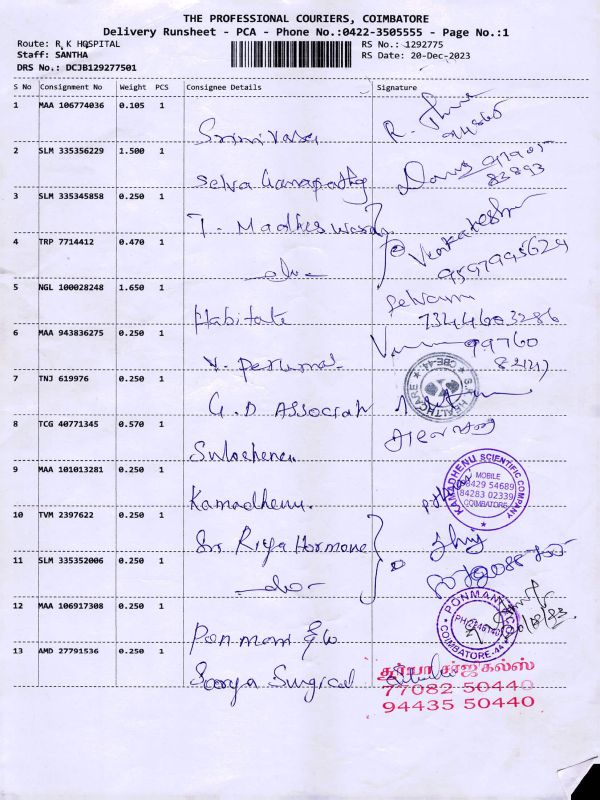 THE PROFESSIONAL COURIERS, COIMBATORE
Delivery Runsheet - PCA - Phone No.:0422-3505555 - Page No.:1
Route: R K HOSPITAL
Staff: SANTHA
DRS No.: DCJB129277501
RS No.: 1292775
RS Date: 20-Dec-2023
S No Consignment No Weight PCS Consignee Details Signature
1 MAA 106774036 0.105 1
Srinivasa R.
94865
2 SLM 335356229 1.500 1
Selva Ganapathy
83893
3 SLM 335345858 0.250 1
T. Madheswaran Venkatesh
4 TRP 7714412 0.470 1
-do- 9597995629
5 NGL 100028248 1.650 1
Habitate Selvam
7344603286
6 MAA 943836275 0.250 1
V. Perumal 99760
7 TNJ 619976 0.250 1
G.D Associat
CBE-44. HEALTHCARE
8 TCG 40771345 0.570 1
Sulochena
9 MAA 101013281 0.250 1
Kamadhenu.
KAMADHENU SCIENTIFIC COMPANY
MOBILE
98429 54689
84283 02339
COIMBATORE
10 TVM 2397622 0.250 1
Sri Riya Hormone
11 SLM 335352006 0.250 1
-do-
12 MAA 106917308 0.250 1
Ponmani
COIMBATORE-44
13 AMD 27791536 0.250 1
Soorya Surgical
சூர்யா சர்ஜிகல்ஸ்
77082 50440
94435 50440